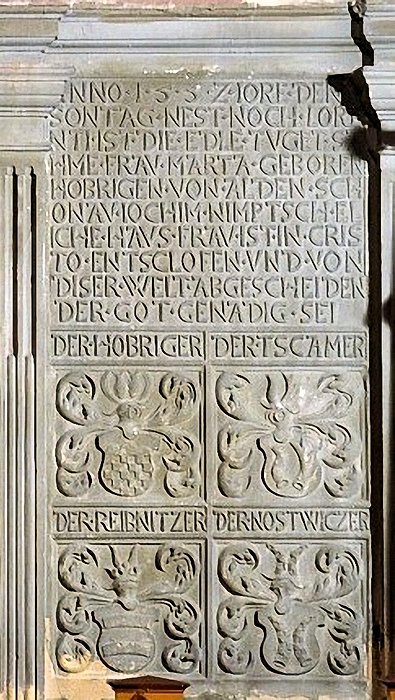 ANNO·1·5·8·Z·IORE·DEN
SONTAG·NEST·NOCH·LOR
NTI·IST·DIE·EDLE·TVGETS
AME·FRAV·MARTA·GEBOREN
HOBRIGEN·VON·ALDEN·SCH
ONAV·IOCHIM·NIMPTSCH·EL
ICHE·HAVS·FRAV·IST·IN·CRIS
TO·ENTSCLOFEN·VND·VON
DISER·WELT·ABGESCHEIDEN
DER·GOT·GENADIG·SEI
DER·HOBRIGER
DER·TSCAMER
DER·REIBNITZER
DER·NOSTWICZER